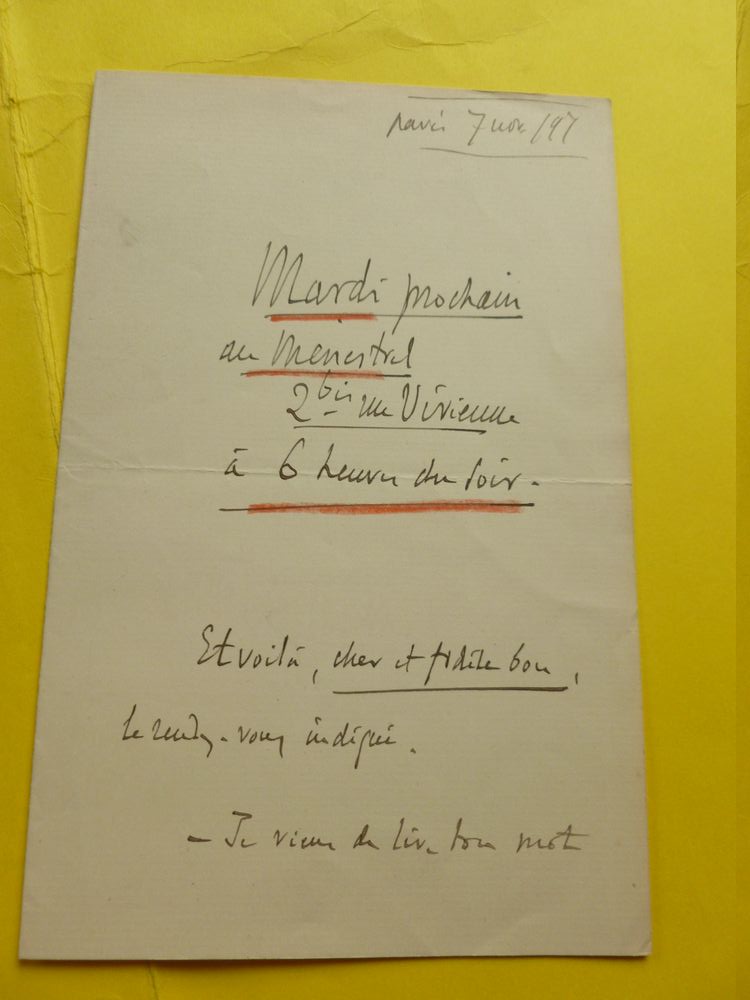 Paris 7 nov /97
Mardi prochain
au Ménestrel
2 bis rue Vivienne
à 6 heures du soir.
Et voilà, cher et fidèle bon,
le rendez-vous indiqué.
– Je viens de lire ton mot